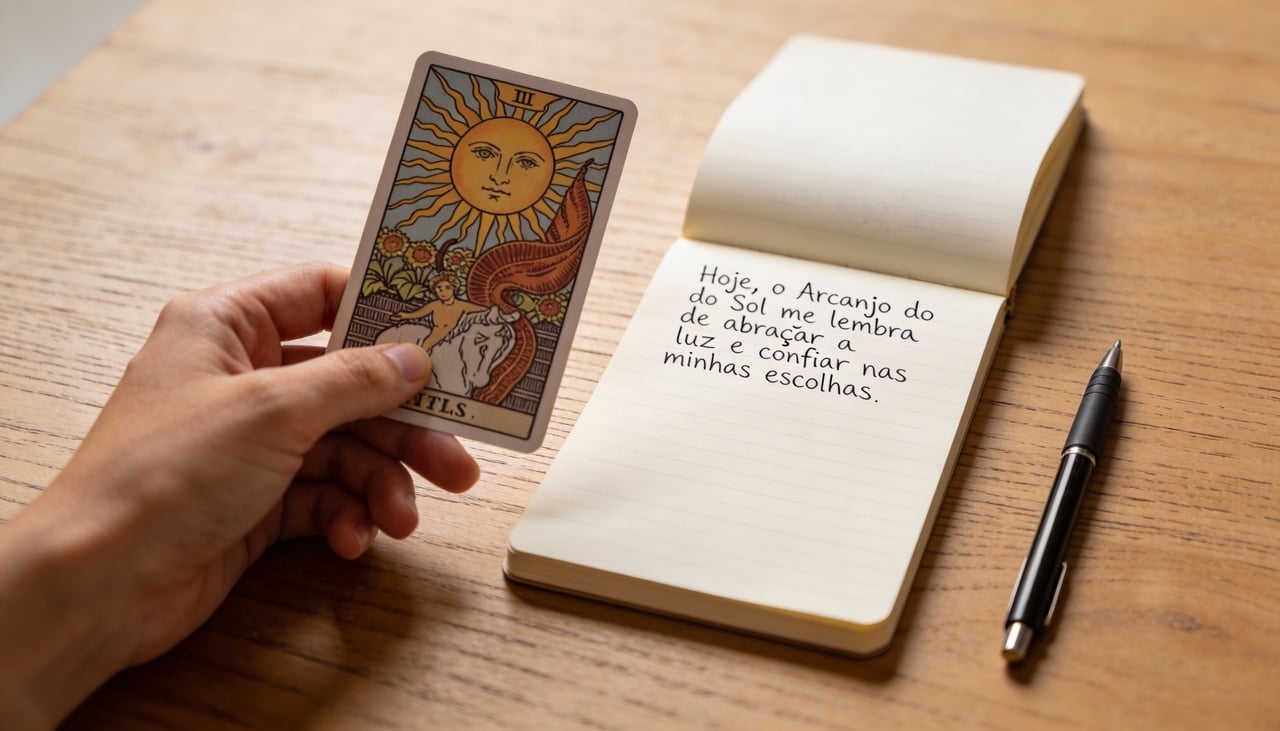 III
ITLS.
Hoje, o Arcanjo do
do Sol me lembra
de abraçar a
luz e confiar nas
minhas escolhas.